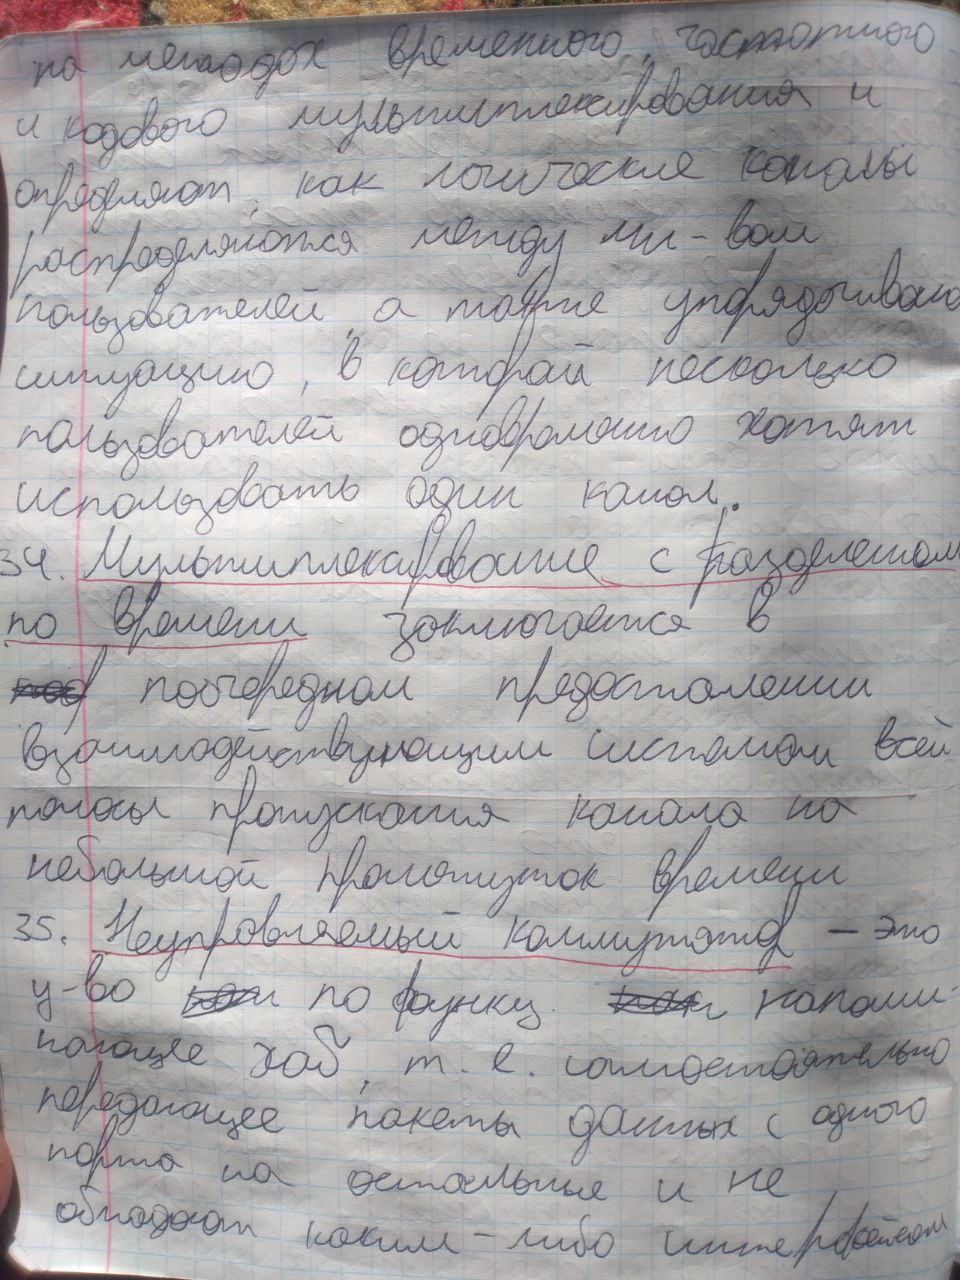 на методах временного, частотного
и кодового мультиплексирования и
определяют, как логические каналы
распределяются между мн-вом
пользователей, а также упорядочивают
ситуацию, в которой несколько
пользователей одновременно хотят
использовать один канал.
34. Мультиплексирование с разделением
по времени заключается в
поочередном предоставлении
взаимодействующим системам всей
полосы пропускания канала на
небольшой промежуток времени
35. Неуправляемый коммутатор – это
у-во по функц. напоми-
нающее хаб, т. е. самостоятельно
передающее пакеты данных с одного
порта на остальные и не
обладают каким-либо интерфейсом